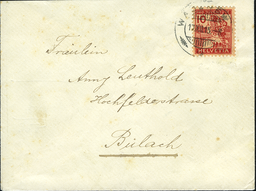 10
HELVETIA
Fräulein
Anny Leuthold
Hochfelderstrasse
Bülach